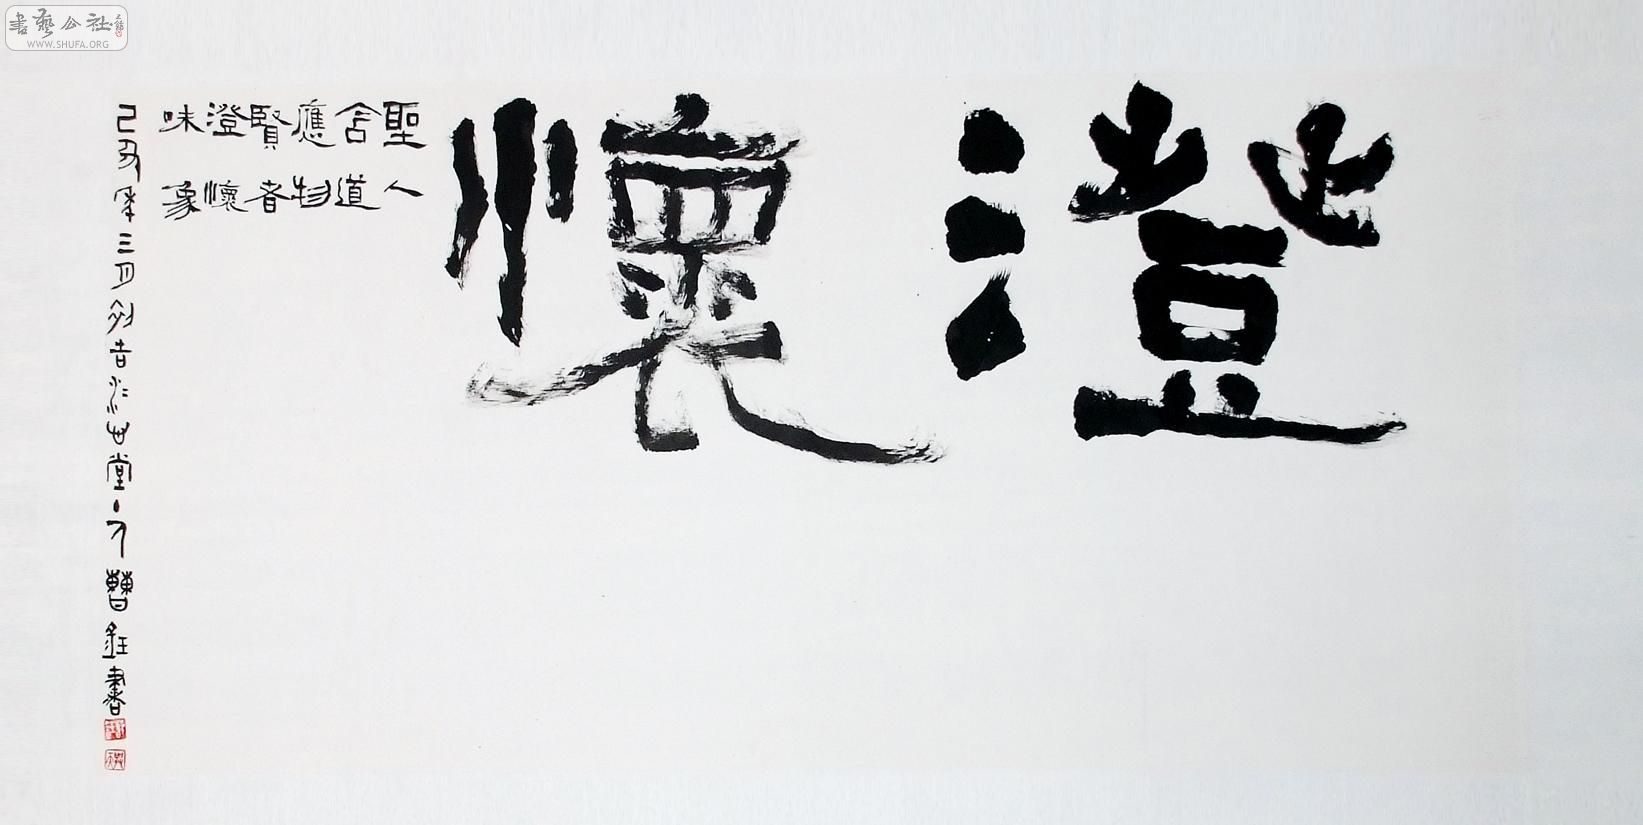 書藝公社
WWW.SHUFA.ORG
澄懷
聖人
含道
應物
賢者
澄懷
味象
己丑年三月初吉於堂曹書